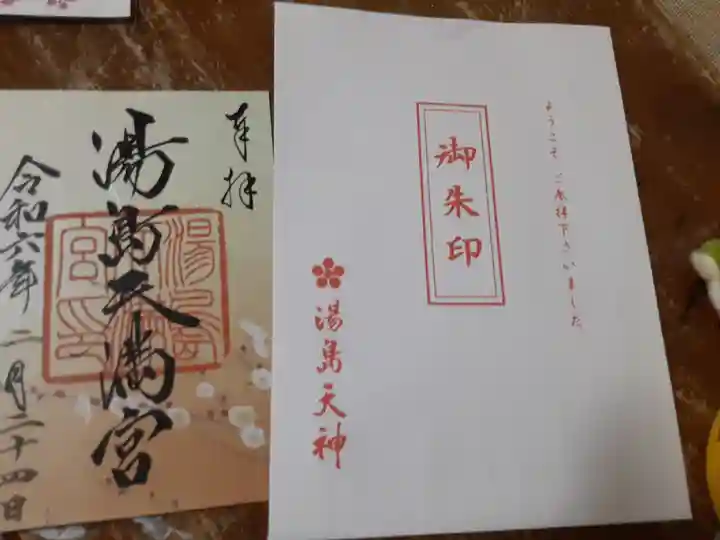 奉拝
湯島天満宮
令和六年 二月二十四日
ようこそ ご参拝下さいました
御朱印
湯島天神